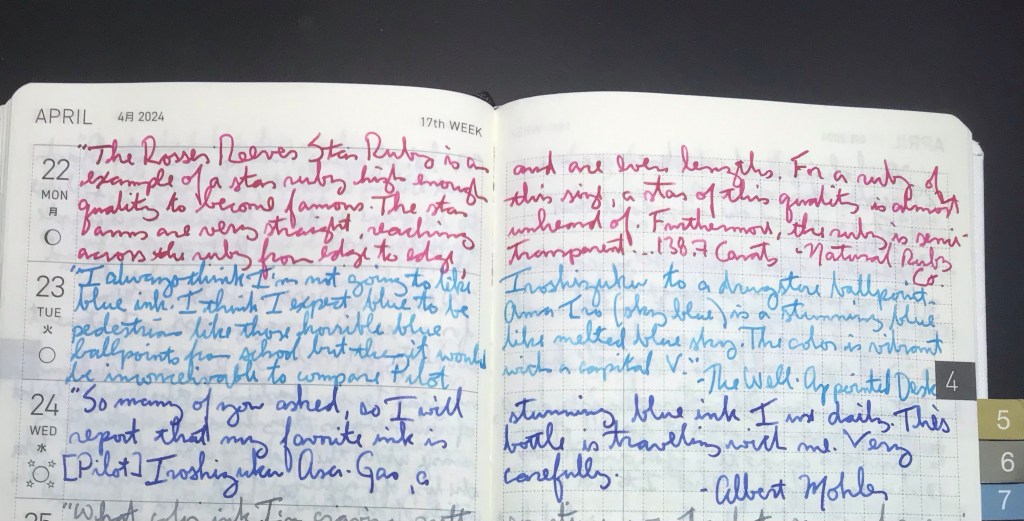 APRIL 4月 2024 17th WEEK
22
MON
月
"The Rosser Reeves Star Ruby is an
example of a star ruby high enough
quality to become famous. The star
arms are very straight, reaching
across the ruby from edge to edge,
and are even lengths. For a ruby of
this size, a star of this quality is almost
unheard of. Furthermore, the ruby is semi-
transparent...138.7 Carats -Natural Ruby
Co.
23
TUE
火
"I always think I'm not going to like
blue ink. I think I expect blue to be
pedestrian like those horrible blue
ballpoints from school but it would
be inconceivable to compare Pilot
Iroshizuku to a drugstore ballpoint.
Ama Iro (sky blue) is a stunning blue
like melted blue sky. The color is vibrant
with a capital V."
-The Well-Appointed Desk
24
WED
水
"So many of you asked, so I will
report that my favorite ink is
[Pilot] Iroshizuku Asa-Gao, a
stunning blue ink I use daily. This
bottle is traveling with me. Very
carefully.
-Albert Mohler
25
"What color ink I'm craving
4
5
6
7
APRIL